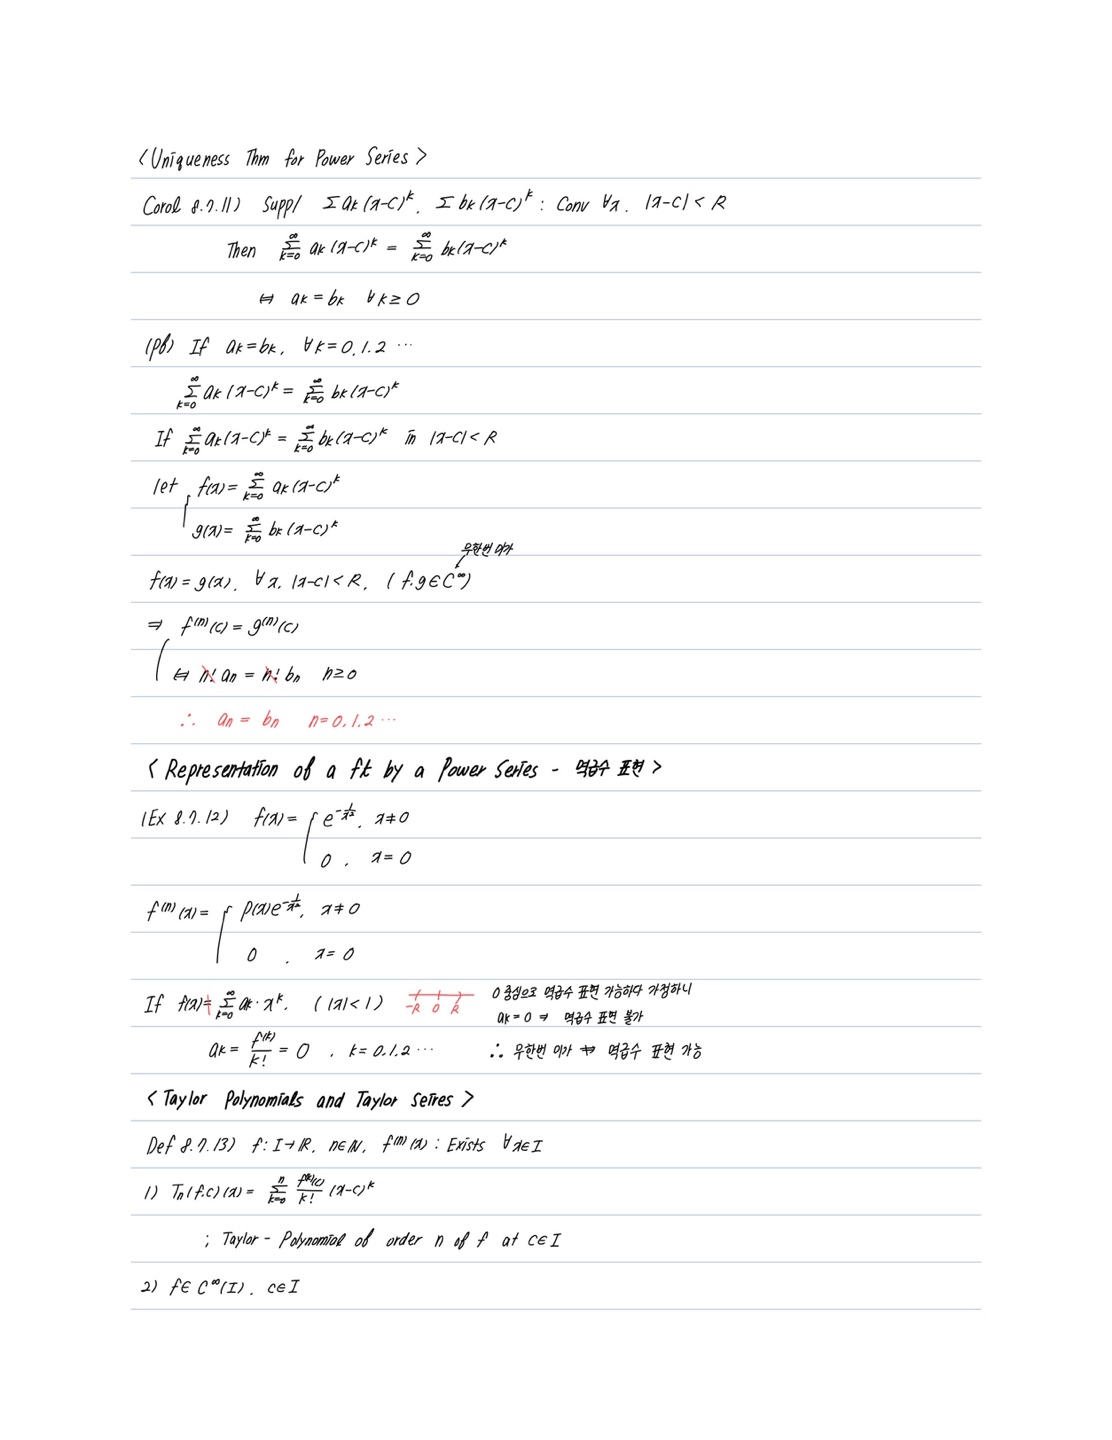 <Uniqueness Thm for Power Series>
Corol 8.7.11) Supp/ Σ ak (x-c)^k, Σ bk (x-c)^k : Conv ∀x, |x-c| < R
Then Σ_{k=0}^∞ ak (x-c)^k = Σ_{k=0}^∞ bk (x-c)^k
⇔ ak = bk ∀k ≥ 0
(pf) If ak = bk, ∀k = 0, 1, 2 ⋯
Σ_{k=0}^∞ ak (x-c)^k = Σ_{k=0}^∞ bk (x-c)^k
If Σ_{k=0}^∞ ak (x-c)^k = Σ_{k=0}^∞ bk (x-c)^k in |x-c| < R
let f(x) = Σ_{k=0}^∞ ak (x-c)^k
g(x) = Σ_{k=0}^∞ bk (x-c)^k
무한번 미가
f(x) = g(x), ∀x, |x-c| < R, (f, g ∈ C^∞)
⇒ f^(n)(c) = g^(n)(c)
⇔ n! an = n! bn n ≥ 0
∴ an = bn n = 0, 1, 2 ⋯
<Representation of a ft by a Power Series - 멱급수 표현>
(Ex 8.7.12) f(x) = { e^{-1/x²}, x ≠ 0
0, x = 0
f^(n)(x) = { p(x)e^{-1/x²}, x ≠ 0
0, x = 0
If f(x) = Σ_{k=0}^∞ ak · x^k, (|x| < 1) -R 0 R 0 중심으로 멱급수 표현 가능하다 가정하니
ak = 0 ⇒ 멱급수 표현 불가
ak = f^(k)/k! = 0, k = 0, 1, 2 ⋯ ∴ 무한번 미가 ⇎ 멱급수 표현 가능
<Taylor Polynomials and Taylor Seires>
Def 8.7.13) f: I → ℝ, n ∈ ℕ, f^(n)(x) : Exists ∀x ∈ I
1) Tn(f,c)(x) = Σ_{k=0}^n f^(k)(c)/k! (x-c)^k
; Taylor - Polynomial of order n of f at c ∈ I
2) f ∈ C^∞(I), c ∈ I